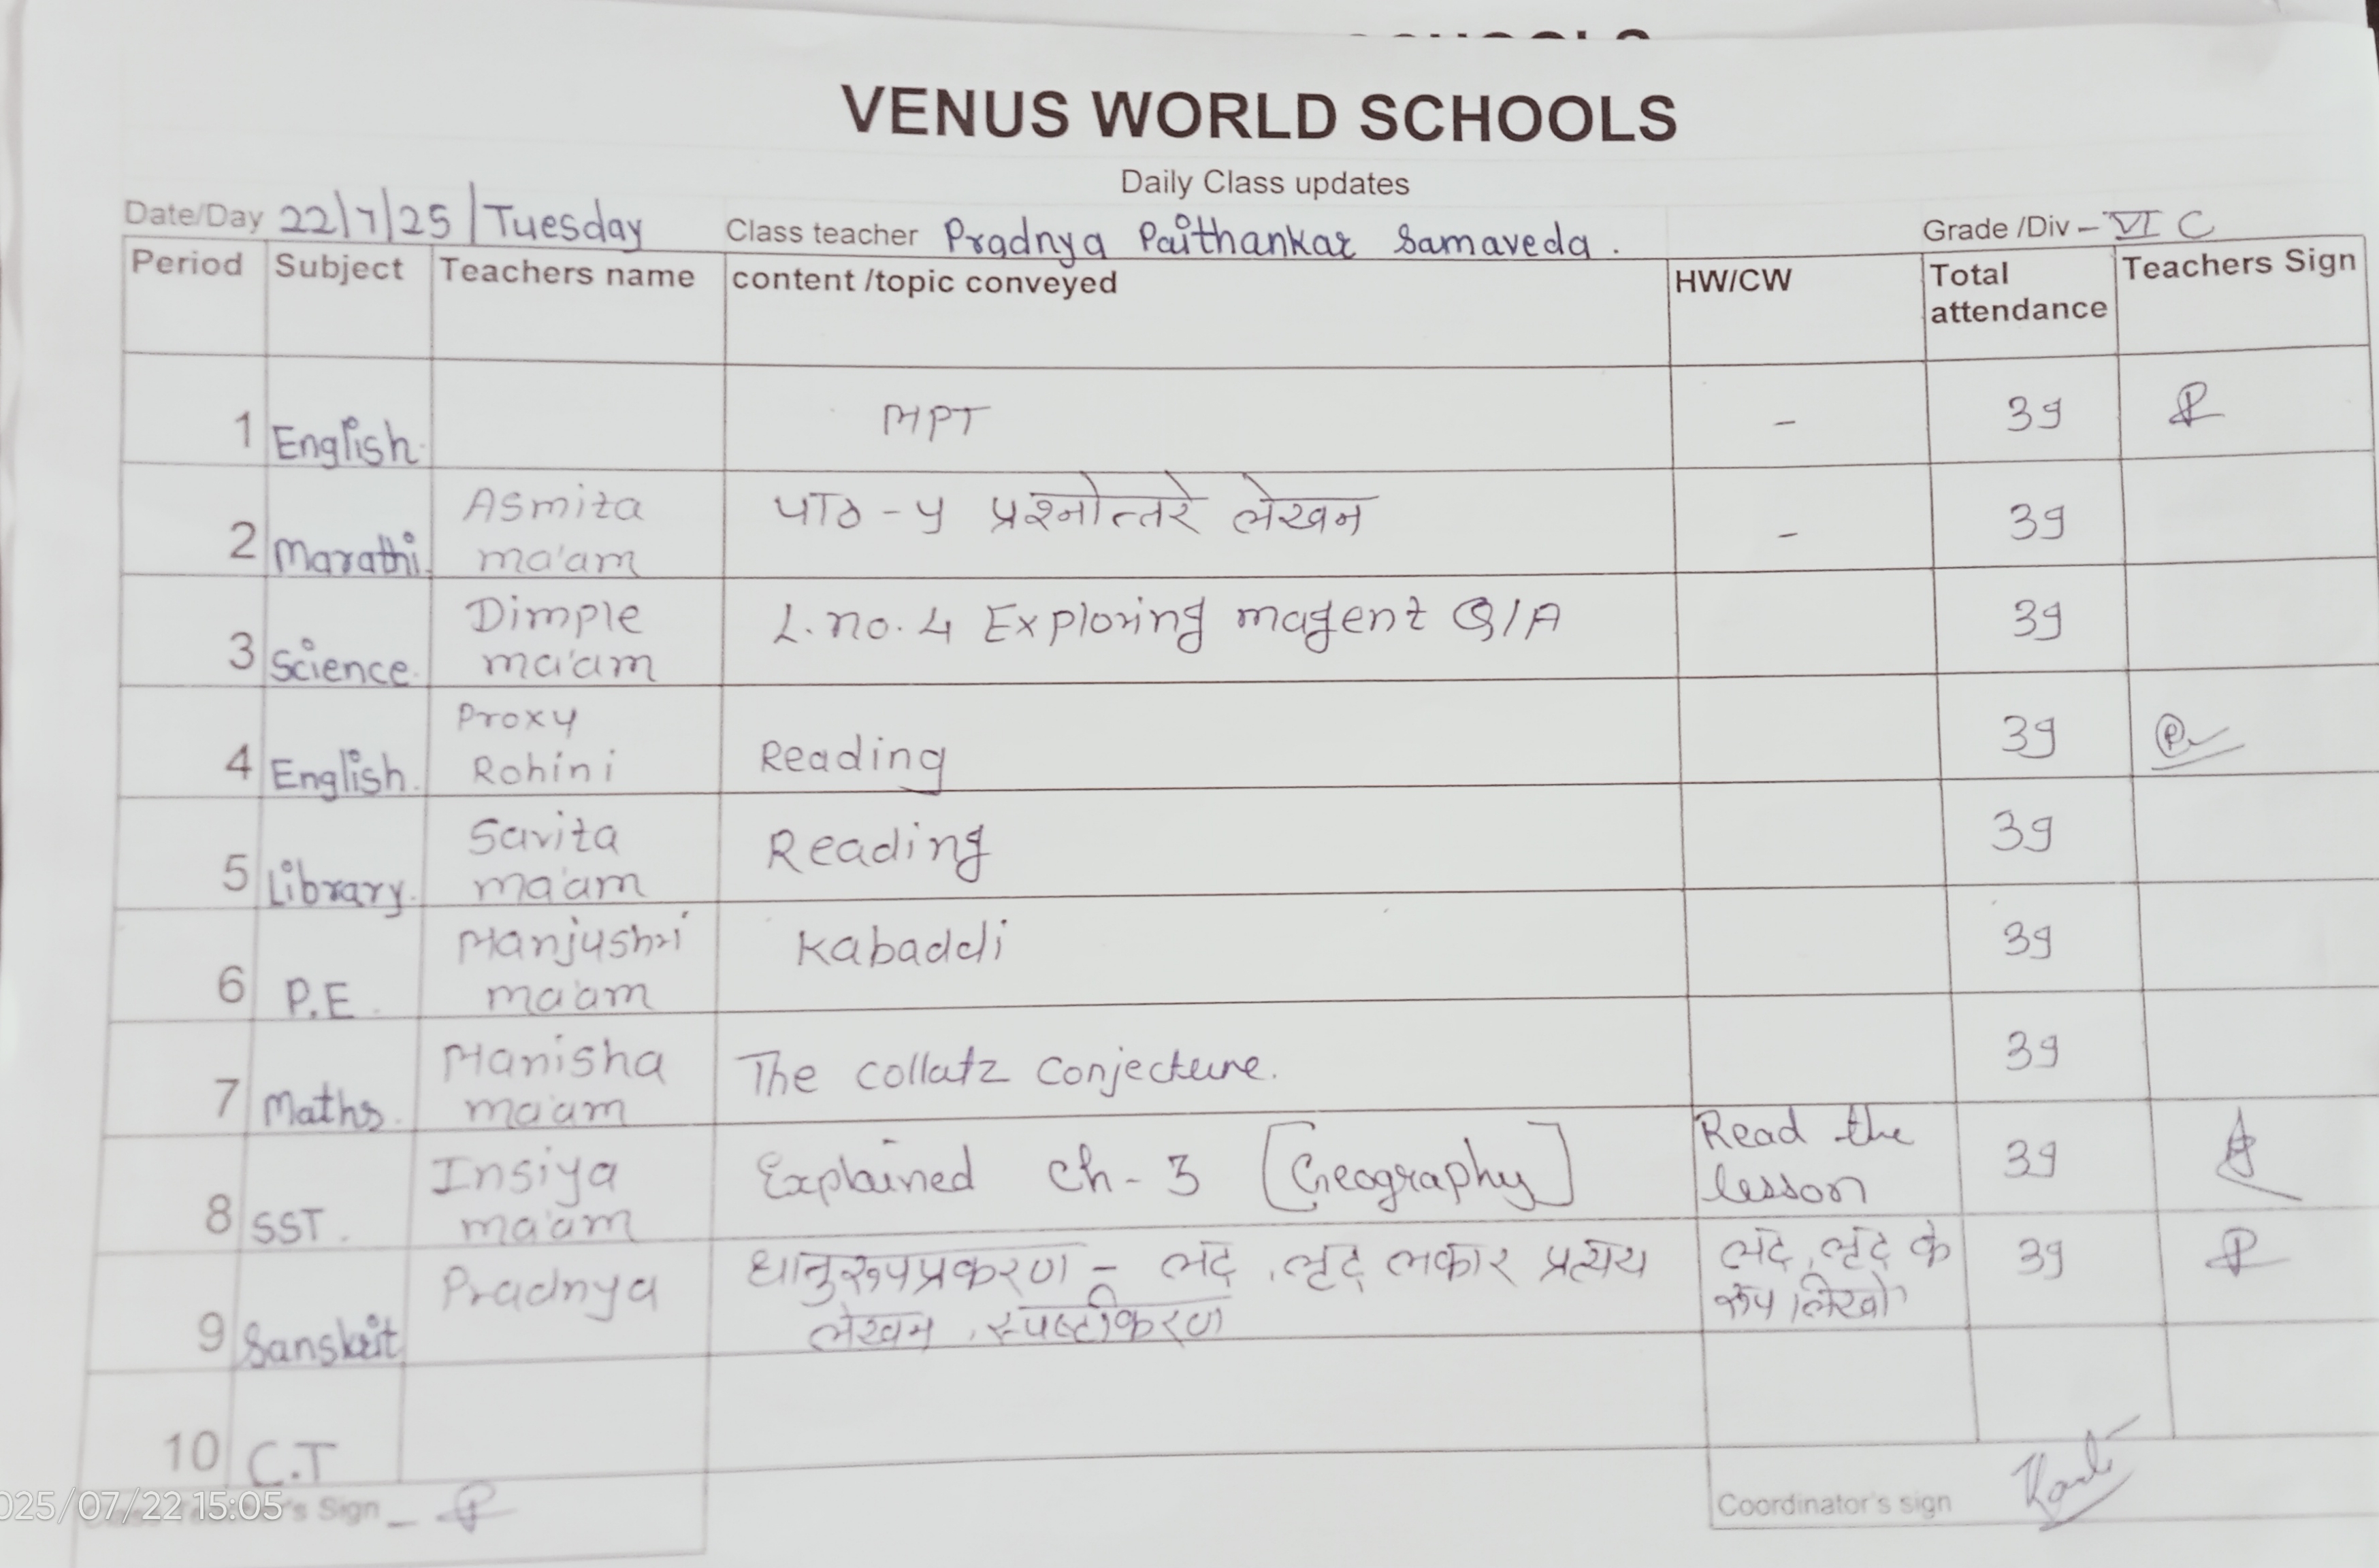 VENUS WORLD SCHOOLS
Daily Class updates
Date/Day 22/7/25 | Tuesday Class teacher Pradnya Paithankar Samaveda. Grade /Div - VI C
Period Subject Teachers name content /topic conveyed HW/CW Total attendance Teachers Sign
1 English. MPT - 39
2 Marathi. Asmita ma'am पाठ - ५ प्रश्नोत्तरे लेखन - 39
3 Science. Dimple ma'am L.no.4 Exploring magent Q/A 39
4 English. Proxy Rohini Reading 39
5 Library. Savita ma'am Reading 39
6 P.E. Manjushri ma'am Kabaddi 39
7 Maths. Manisha ma'am The collatz Conjecture. 39
8 SST. Insiya ma'am Explained Ch - 3 [Geography] Read the lesson 39
9 Sanskrit Pradnya धातुरूपप्रकरण - लट्, लृट् लकार प्रत्यय लट्, लृट् के 39
लेखन, स्पष्टीकरण रूप लिखो
10 C.T
025/07/22 15:05
's Sign -
Coordinator's sign